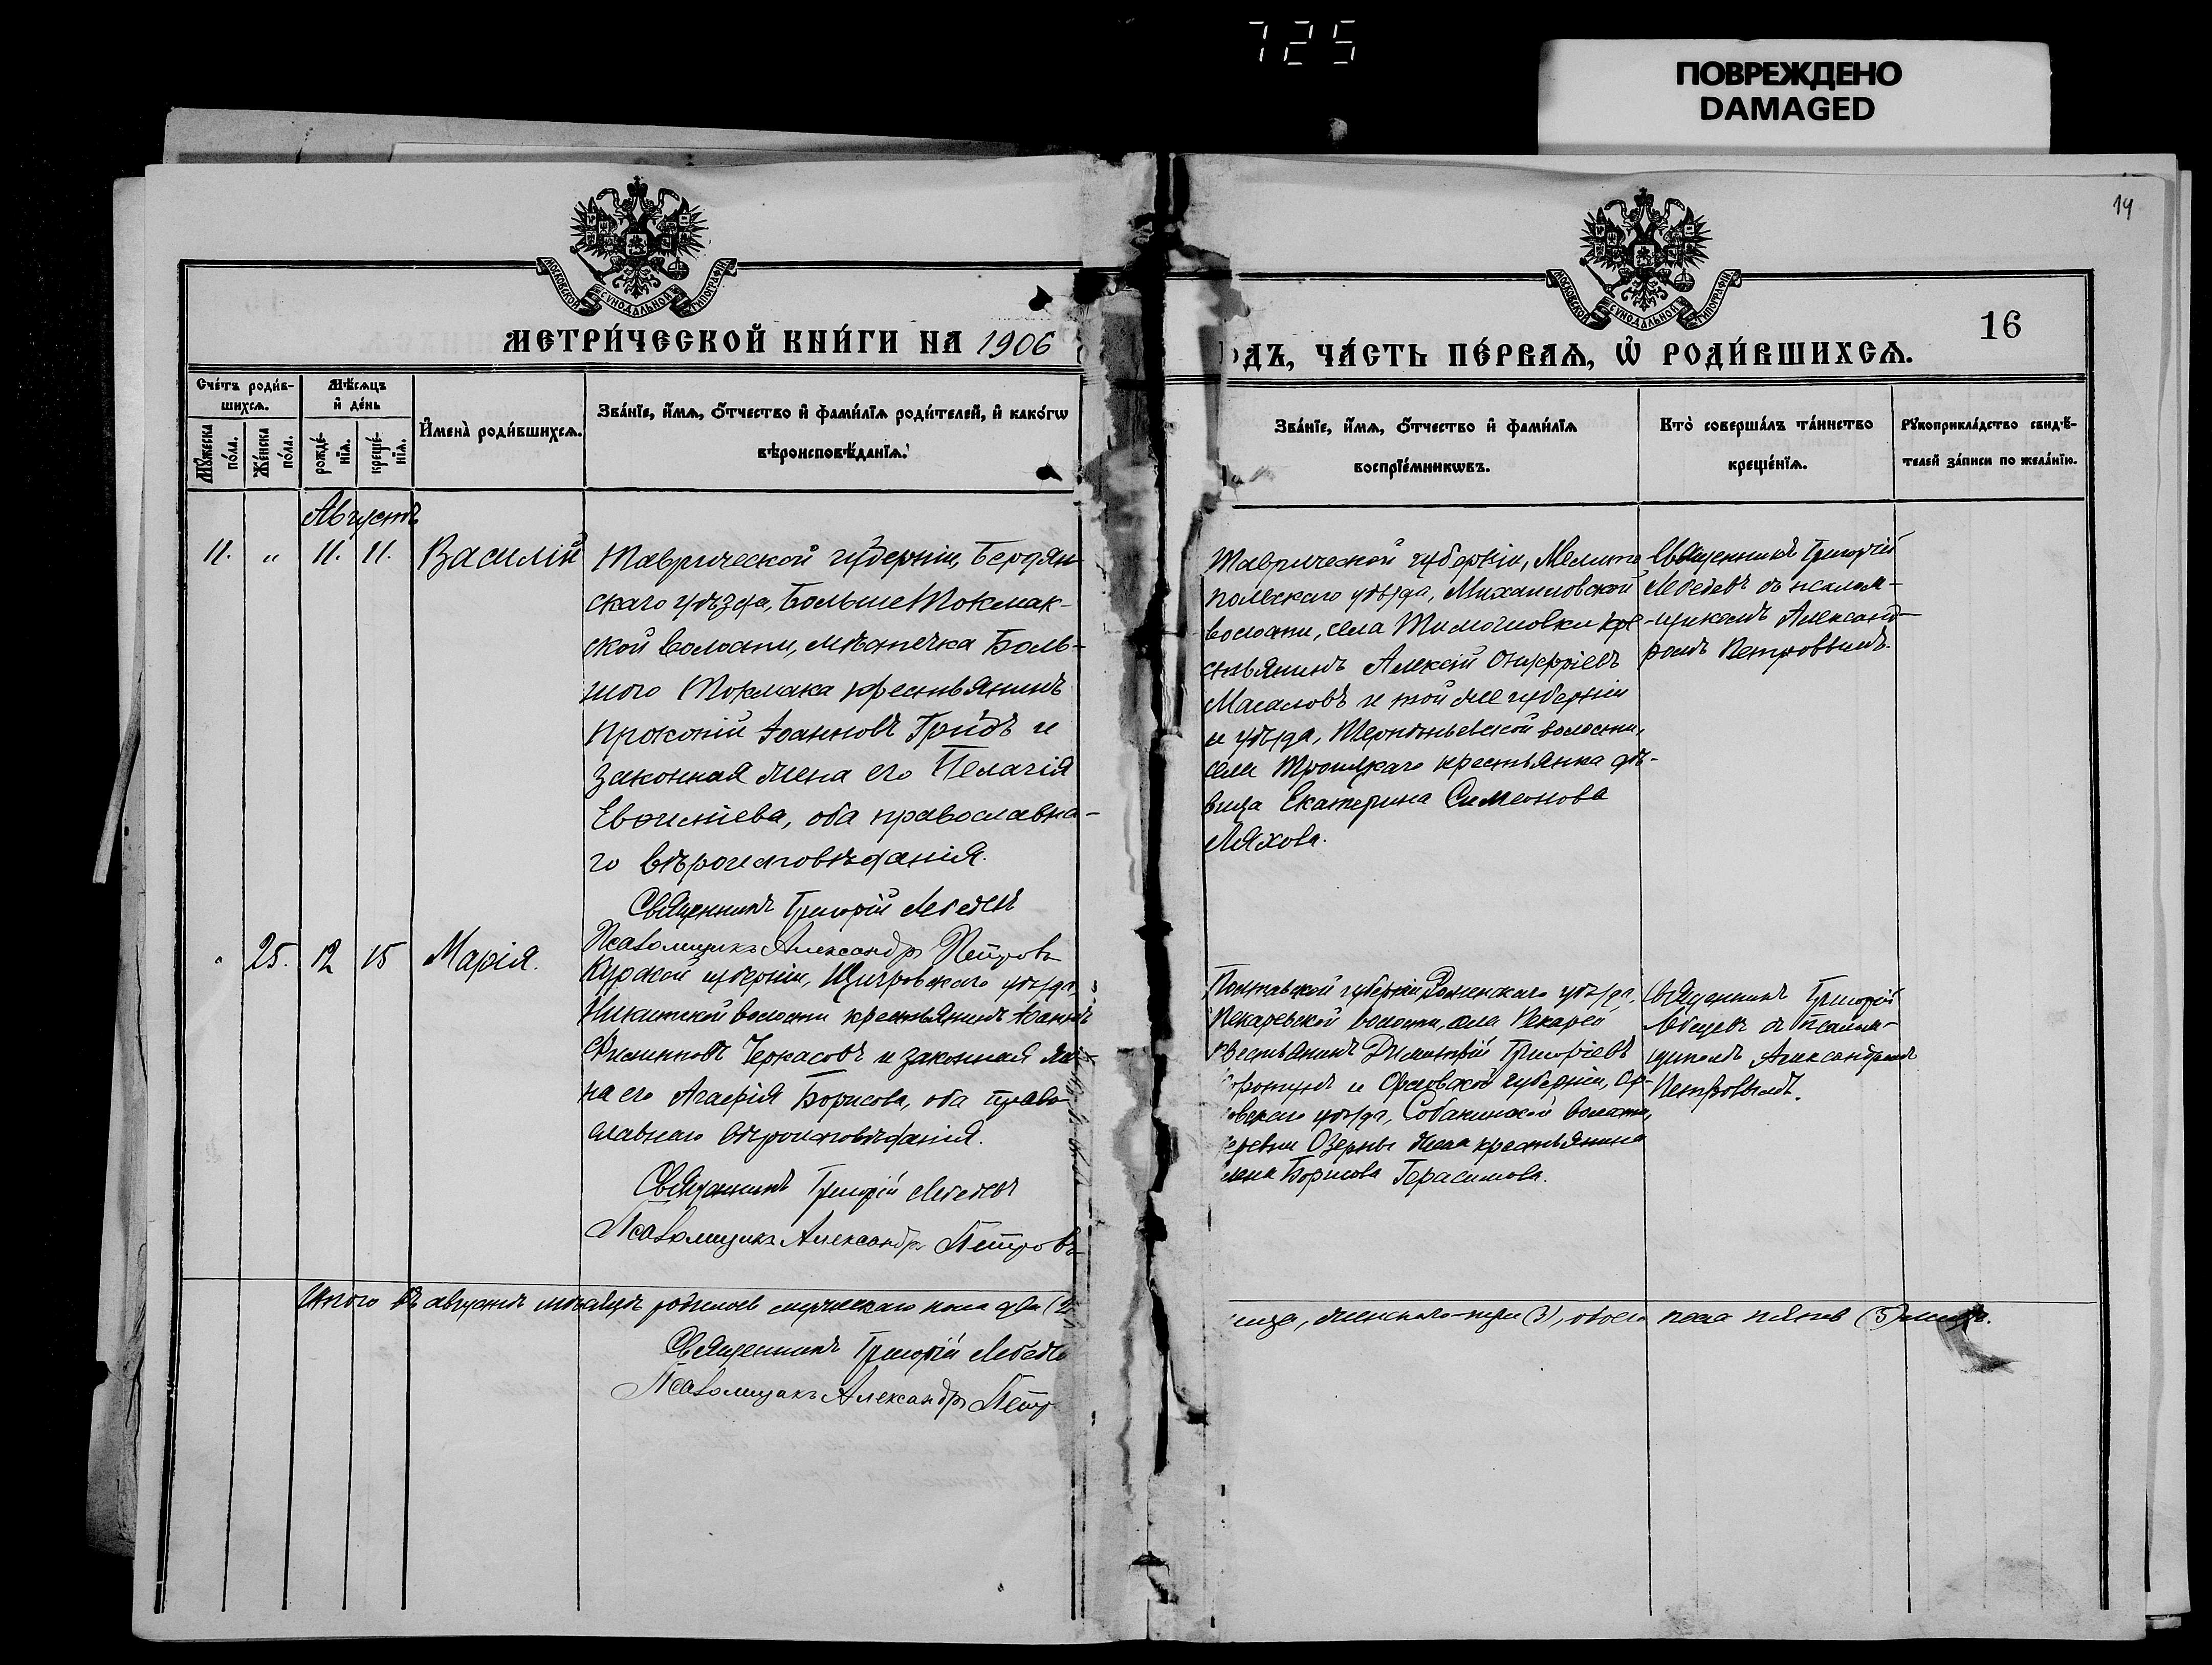 725
ПОВРЕЖДЕНО
DAMAGED
14
МОСКОВСКОЙ СѴНОДАЛЬНОЙ ТИПОГРАФІИ
МОСКОВСКОЙ СѴНОДАЛЬНОЙ ТИПОГРАФІИ
16
МЕТРИ́ЧЕСКОЙ КНИ́ГИ НА 1906
ОДЪ, ЧА́СТЬ ПЕ́РВАѦ, Ѿ РОДИ́ВШИХСѦ.
Сче́тъ роди́в-
шихсѧ.
Мѹ́жеска по́ла.
Же́нска по́ла.
Мѣ́сѧцъ
и҆ де́нь
рожде́-
нїѧ.
креще́-
нїѧ.
И҆мена̀ роди́вшихсѧ.
Зва́нїе, и҆́мѧ, ѻ҆́тчество и҆ фами́лїѧ роди́телей, и҆ како́гѡ
вѣроисповѣ́данїѧ.
Зва́нїе, и҆́мѧ, ѻ҆́тчество и҆ фами́лїѧ
воспрїе́мникѡвъ.
Кто̀ соверша́лъ та́инство
креще́нїѧ.
Рѹкоприкла́дство свидѣ́-
телей за́писи по жела́нїю.
Августъ
11. „ 11. 11. Василій
Таврической губерніи, Бердян-
скаго уѣзда, БольшеТокмак-
ской волости, мѣстечка Боль-
шого Токмака крестьянинъ
Прокопій Іоанновъ Гридъ и
законная жена его Пелагія
Евсигніева, оба православна-
го вѣроисповѣданія.
Священникъ Григорій Лебедевъ
Псаломщикъ Александръ Петровъ
Таврической губерніи, Мелито-
польскаго уѣзда, Михайловской
волости, села Тимошовки кре-
стьянинъ Алексій Онуфріевъ
Масаловъ и той же губерніи
и уѣзда, волости,
села Троицкаго крестьянка дѣ-
вица Екатерина Симеонова
Ляхова.
Священникъ Григорій
Лебедевъ съ псалом-
щикомъ Александ-
ромъ Петровымъ.
„ 25. 12 15 Марія.
Курской губерніи, Щигровскаго уѣзда,
Никитской волости крестьянинъ Іоаннъ
Филипповъ Черкасовъ и законная же-
на его Агафія Борисова, оба право-
славнаго вѣроисповѣданія.
Священникъ Григорій Лебедевъ
Псаломщикъ Александръ Петровъ
Полтавской губерніи Роменскаго уѣзда,
Пекаревской волости, села Пекарей
крестьянинъ Димитрій Григоріевъ
и Орловской губерніи, Ор-
ловскаго уѣзда, Собакинской волости,
деревни Озерны жена крестьянина
Борисова Герасимова.
Священникъ Григорій
Лебедевъ съ псалом-
щикомъ Александромъ
Петровымъ.
Итого въ августѣ мѣсяцѣ родилось мужескаго пола два (2)
женскаго-три (3), обоего пола пять (5) лицъ.
Священникъ Григорій Лебедев
Псаломщикъ Александръ Петр